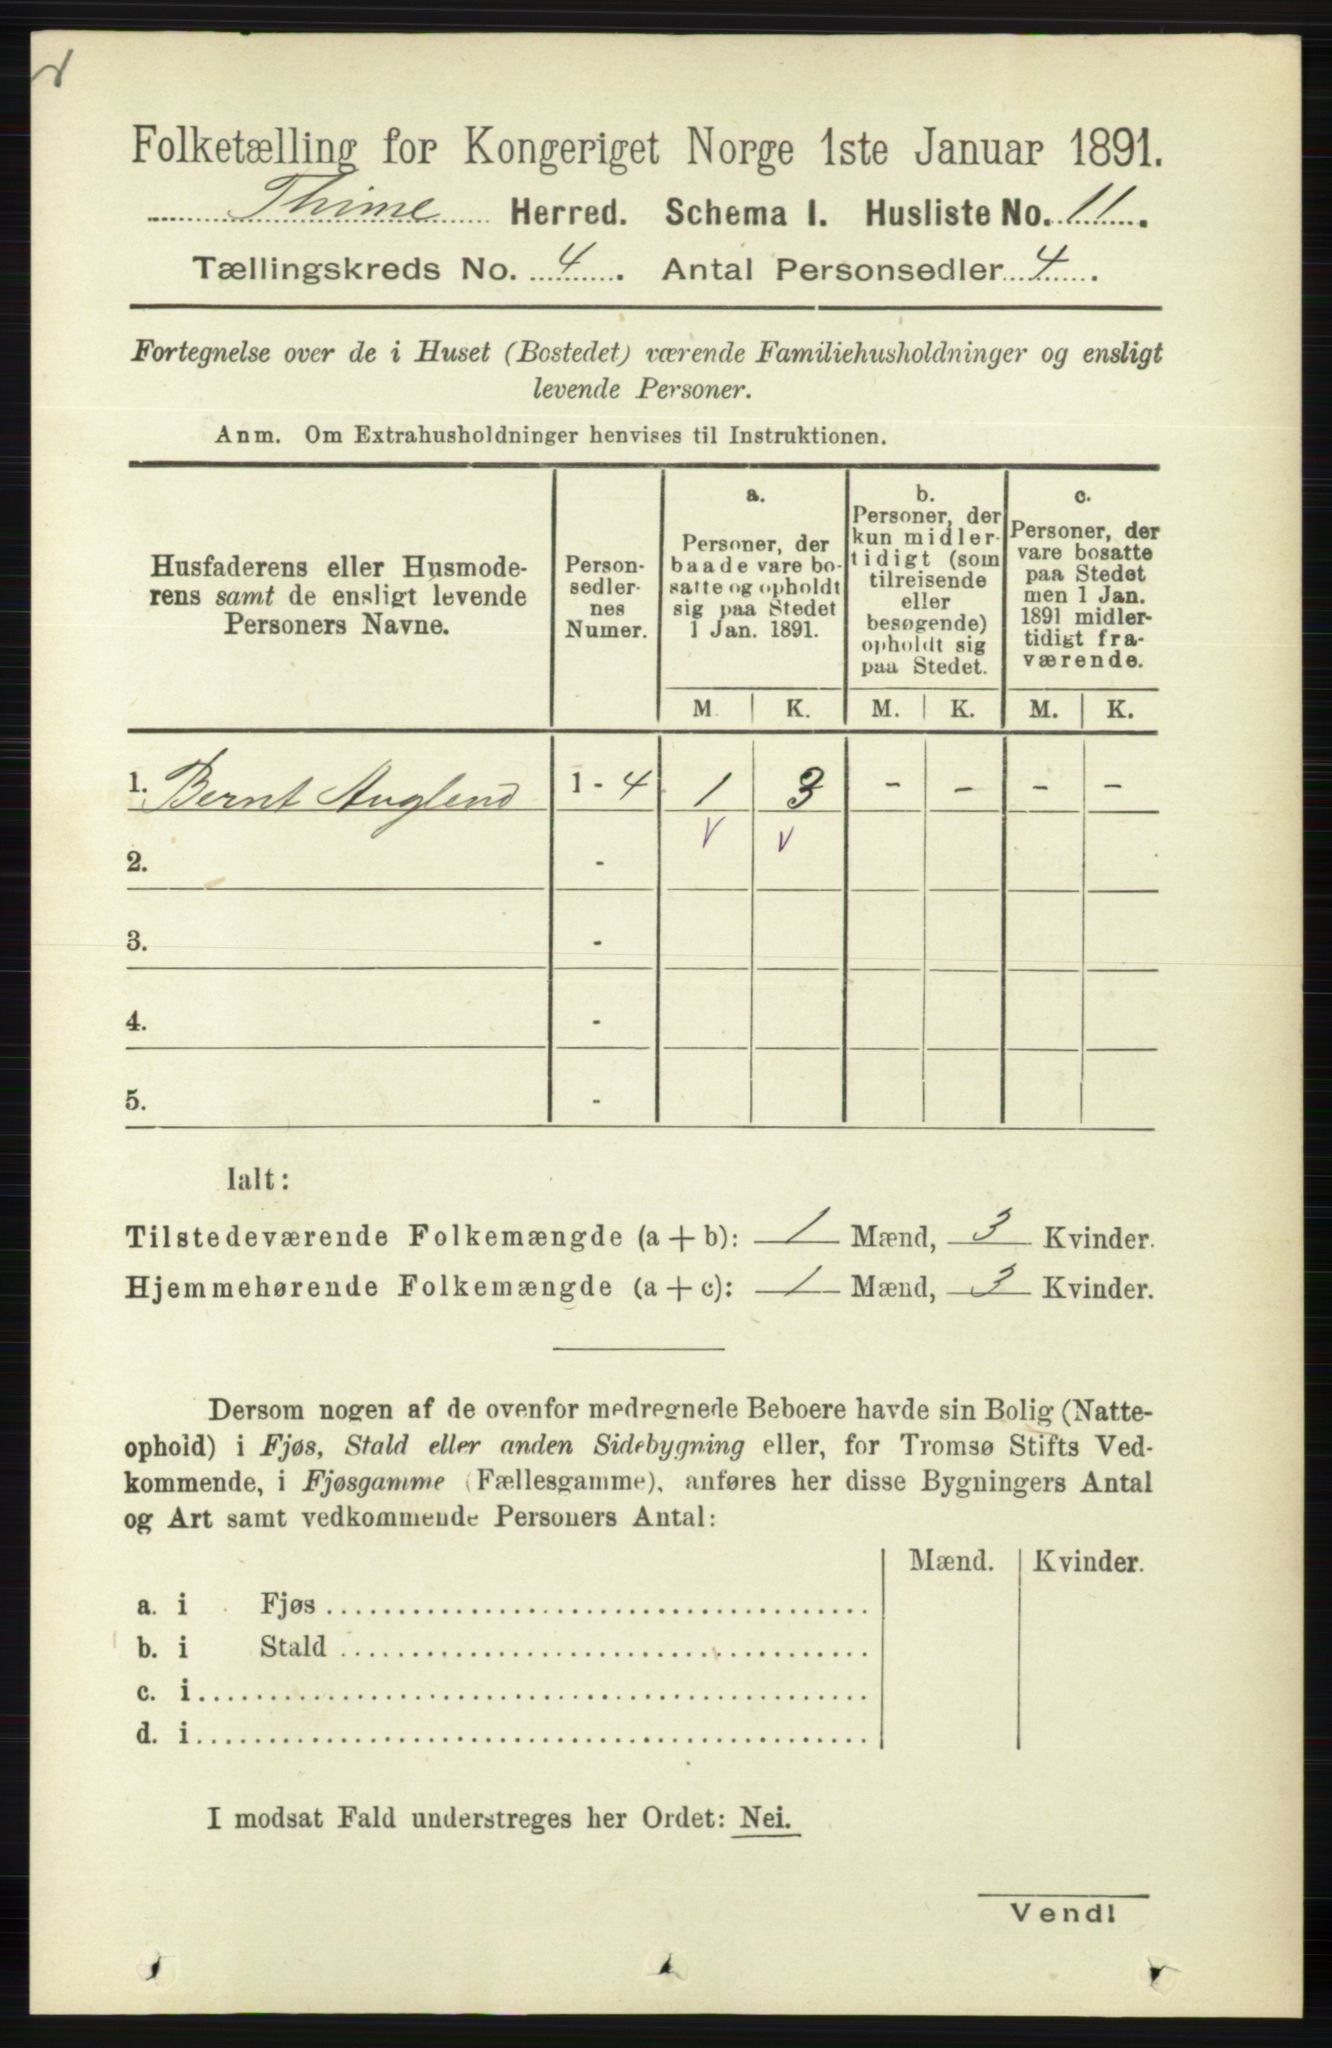 Folketælling for Kongeriget Norge 1ste Januar 1891.
Thime Herred. Schema I. Husliste No. 11.
Tællingskreds No. 4. Antal Personsedler 4.
Fortegnelse over de i Huset (Bostedet) værende Familiehusholdninger og ensligt
levende Personer.
Anm. Om Extrahusholdninger henvises til Instruktionen.
Husfaderens eller Husmode-
rens samt de ensligt levende
Personers Navne.
Person-
sedler-
nes
Numer.
a.
Personer, der
baade vare bo-
satte og opholdt
sig paa Stedet
1 Jan. 1891.
b.
Personer, der
kun midler-
tidigt (som
tilreisende
eller
besøgende)
opholdt sig
paa Stedet.
c.
Personer, der
vare bosatte
paa Stedet
men 1 Jan.
1891 midler-
tidigt fra-
værende.
M. K. M. K. M. K.
1. Bernt Auglend 1 - 4 1 3 - - - -
2. -
3. -
4. -
5. -
Ialt:
Tilstedeværende Folkemængde (a + b): 1 Mænd, 3 Kvinder.
Hjemmehørende Folkemængde (a + c): 1 Mænd, 3 Kvinder.
Dersom nogen af de ovenfor medregnede Beboere havde sin Bolig (Natte-
ophold) i Fjøs, Stald eller anden Sidebygning eller, for Tromsø Stifts Ved-
kommende, i Fjøsgamme (Fællesgamme), anføres her disse Bygningers Antal
og Art samt vedkommende Personers Antal:
Mænd. Kvinder.
a. i Fjøs
b. i Stald
c. i
d. i
I modsat Fald understreges her Ordet: Nei.
Vend!